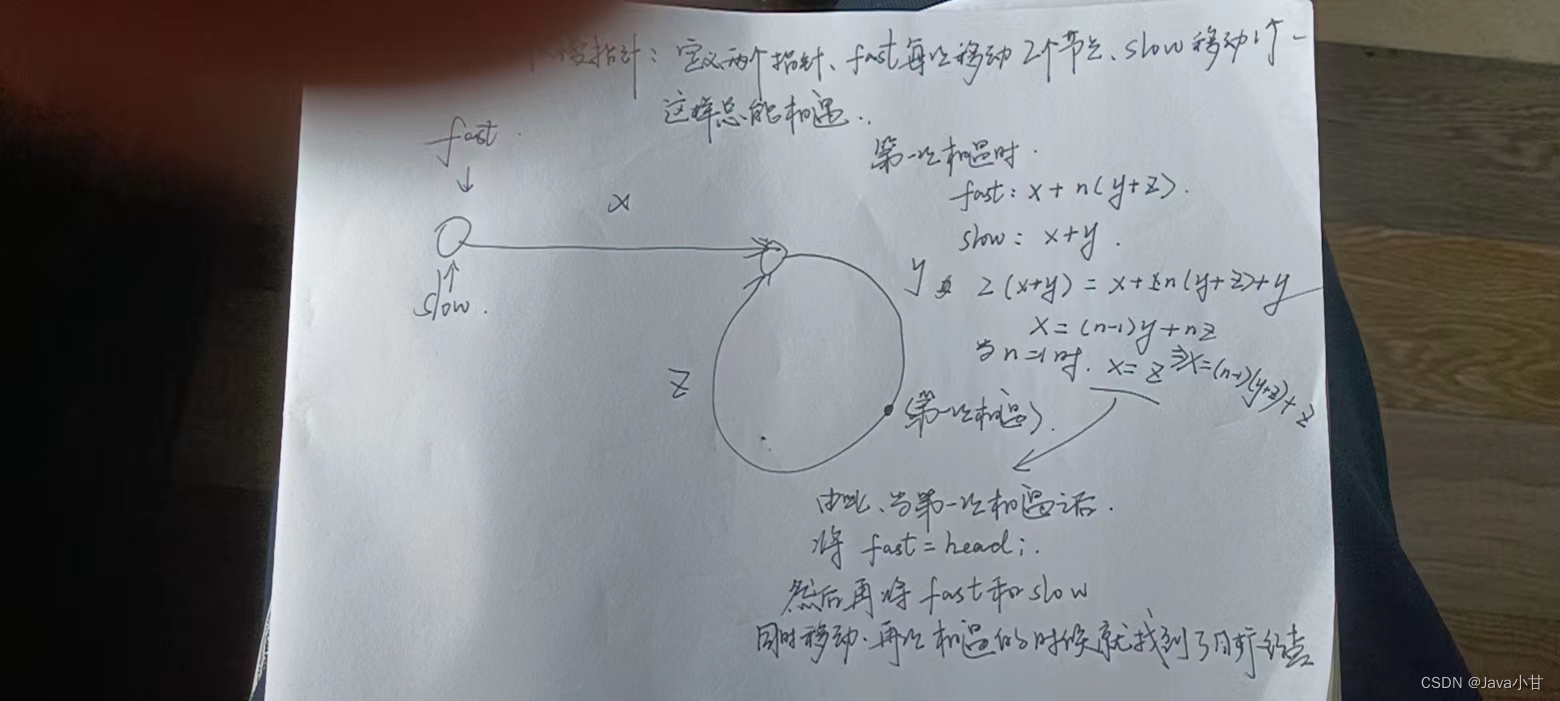 指针：定义两个指针、fast每次移动2个节点、slow移动1个
这样总能相遇..
fast.
x
slow.
第一次相遇时.
fast: x+n(y+z).
slow: x+y.
y
2(x+y) = x+n(y+z)+y
x=(n-1)y+nz
当n=1时. x=z ⇒x=(n-1)(y+z)+z
z
(第一次相遇).
由此、当第一次相遇之后.
将 fast=head;.
然后再将 fast和slow
同时移动.再次相遇的时候就找到了目标
CSDN @Java小甘